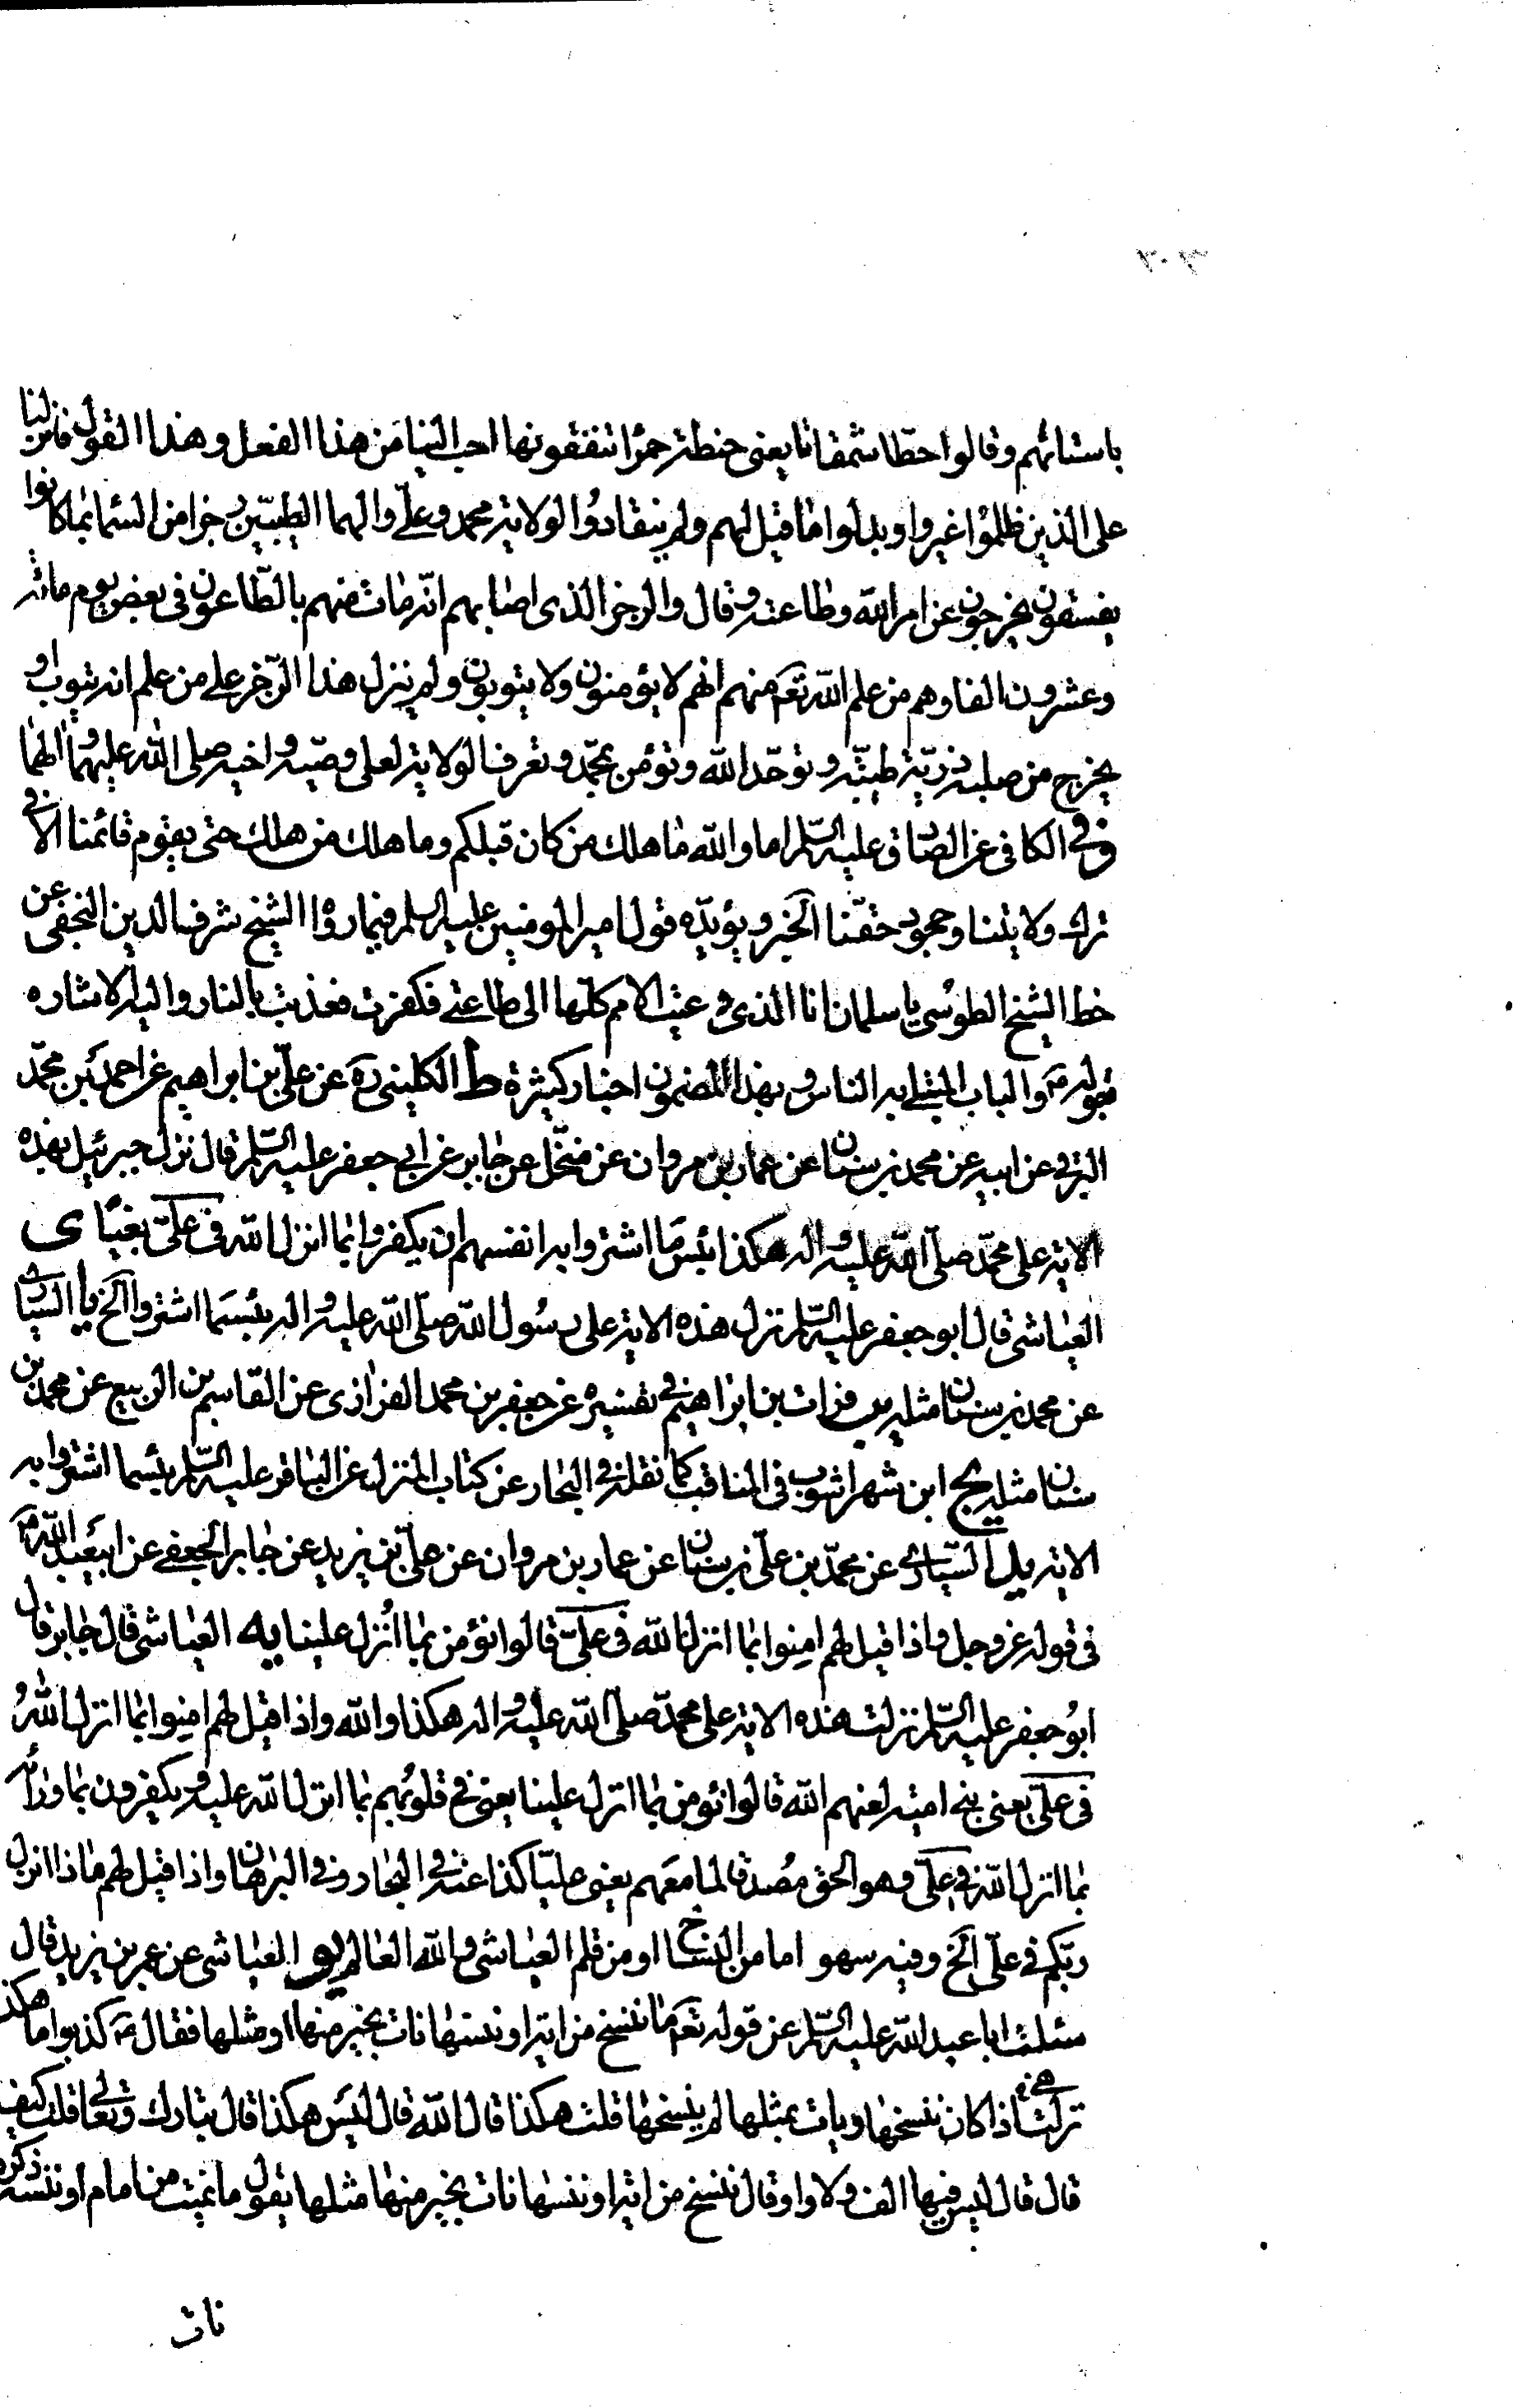 باستائهم وقالوا حطا شمقاتا يعنى حنطة حمرا ننفقونها احب الينا من هذا الفعل وهذا القول فانزلنا
على الذين ظلموا غيروا وبدلوا ما قيل لهم ولم ينقادوا لولاية محمد وعلى والهما الطيبين رجزا من السماء بما كانوا
يفسقون يخرجون عن امر الله وطاعته وقال والرجز الذى اصابهم انه مات منهم بالطاعون فى بعض يوم مائة
وعشرون الفا وهم من علم الله تعم منهم انهم لا يؤمنون ولا يتوبون ولم ينزل هذا الرجز على من علم انه يتوب او
يخرج من صلبه ذرية طيبة وتوحد الله وتؤمن بمحمد وتعرف الولاية لعلى وصيه واخيه صلى الله عليهما والهما
وفى الكافى عن الصادق عليه السلم اما والله ما هلك من كان قبلكم وما هلك من هلك حتى يقوم قائمنا الا فى
ترك ولايتنا وجحود حقنا الخبر ويؤيده قول امير المومنين عليه السلم فيما رواه الشيخ شرف الدين النجفى عن
خط الشيخ الطوسى يا سلمان انا الذى دعيت الامم كلها الى طاعتى فكفرت فعذبت بالنار واليه الاشاره
بقوله ع والباب المبتلى به الناس وبهذا المضمون اخبار كثيرة ط الكلينى ره عن على بن ابراهيم عن احمد بن محمد
البرقى عن ابيه عن محمد بن سنان عن عمار بن مروان عن منخل عن جابر عن ابى جعفر عليه السلم قال نزل جبرئيل بهذه
الاية على محمد صلى الله عليه واله هكذا بئس ما اشتروا به انفسهم ان يكفروا بما انزل الله فى على بغيا ى
العياشى قال ابو جعفر عليه السلم نزل هذه الاية على رسول الله صلى الله عليه واله بئسما اشتروا الخ يا السيارى
عن محمد بن سنان مثله يب فرات بن ابراهيم فى تفسيره عن جعفر بن محمد الفزارى عن القاسم بن الربيع عن محمد بن
سنان مثله يج ابن شهراشوب فى المناقب كما نقله فى البحار عن كتاب المنزل عن الباقر عليه السلم بئسما اشتروا به
الاية يد السيارى عن محمد بن على بن سنان عن عمار بن مروان عن على بن يزيد عن جابر الجعفى عن ابيعبد الله ع
فى قوله عز وجل واذا قيل لهم امنوا بما انزل الله فى على قالوا نؤمن بما انزل علينا يه العياشى قال جابر قال
ابو جعفر عليه السلم نزلت هذه الاية على محمد صلى الله عليه واله هكذا والله واذا قيل لهم امنوا بما انزل الله
فى على يعنى بنى امية لعنهم الله قالوا نؤمن بما انزل علينا يعنى فى قلوبهم بما انزل الله عليه ويكفرون بما ورائه
بما انزل الله فى على وهو الحق مصدقا لما معهم يعنى عليا كذا عنه فى البحار وفى البرهان واذا قيل لهم ماذا انزل
ربكم فى على الخ وفيه سهو اما من النساخ او من قلم العياشى والله العالم يو العياشى عن عمر بن يزيد قال
سئلت ابا عبد الله عليه السلم عن قوله تعم ما ننسخ من اية او ننسها نات بخير منها او مثلها فقال ع كذبوا ما هكذا
هى نزلت اذا كان ننسخها ويات بمثلها لم ينسخها قلت هكذا قال الله قال ليس هكذا قال تبارك وتعالى قلت كيف
قال قال ليس فيها الف ولا واو قال ننسخ من اية او ننسها نات بخير منها مثلها يقول ما نميت من امام او ننسه ذكره
نات